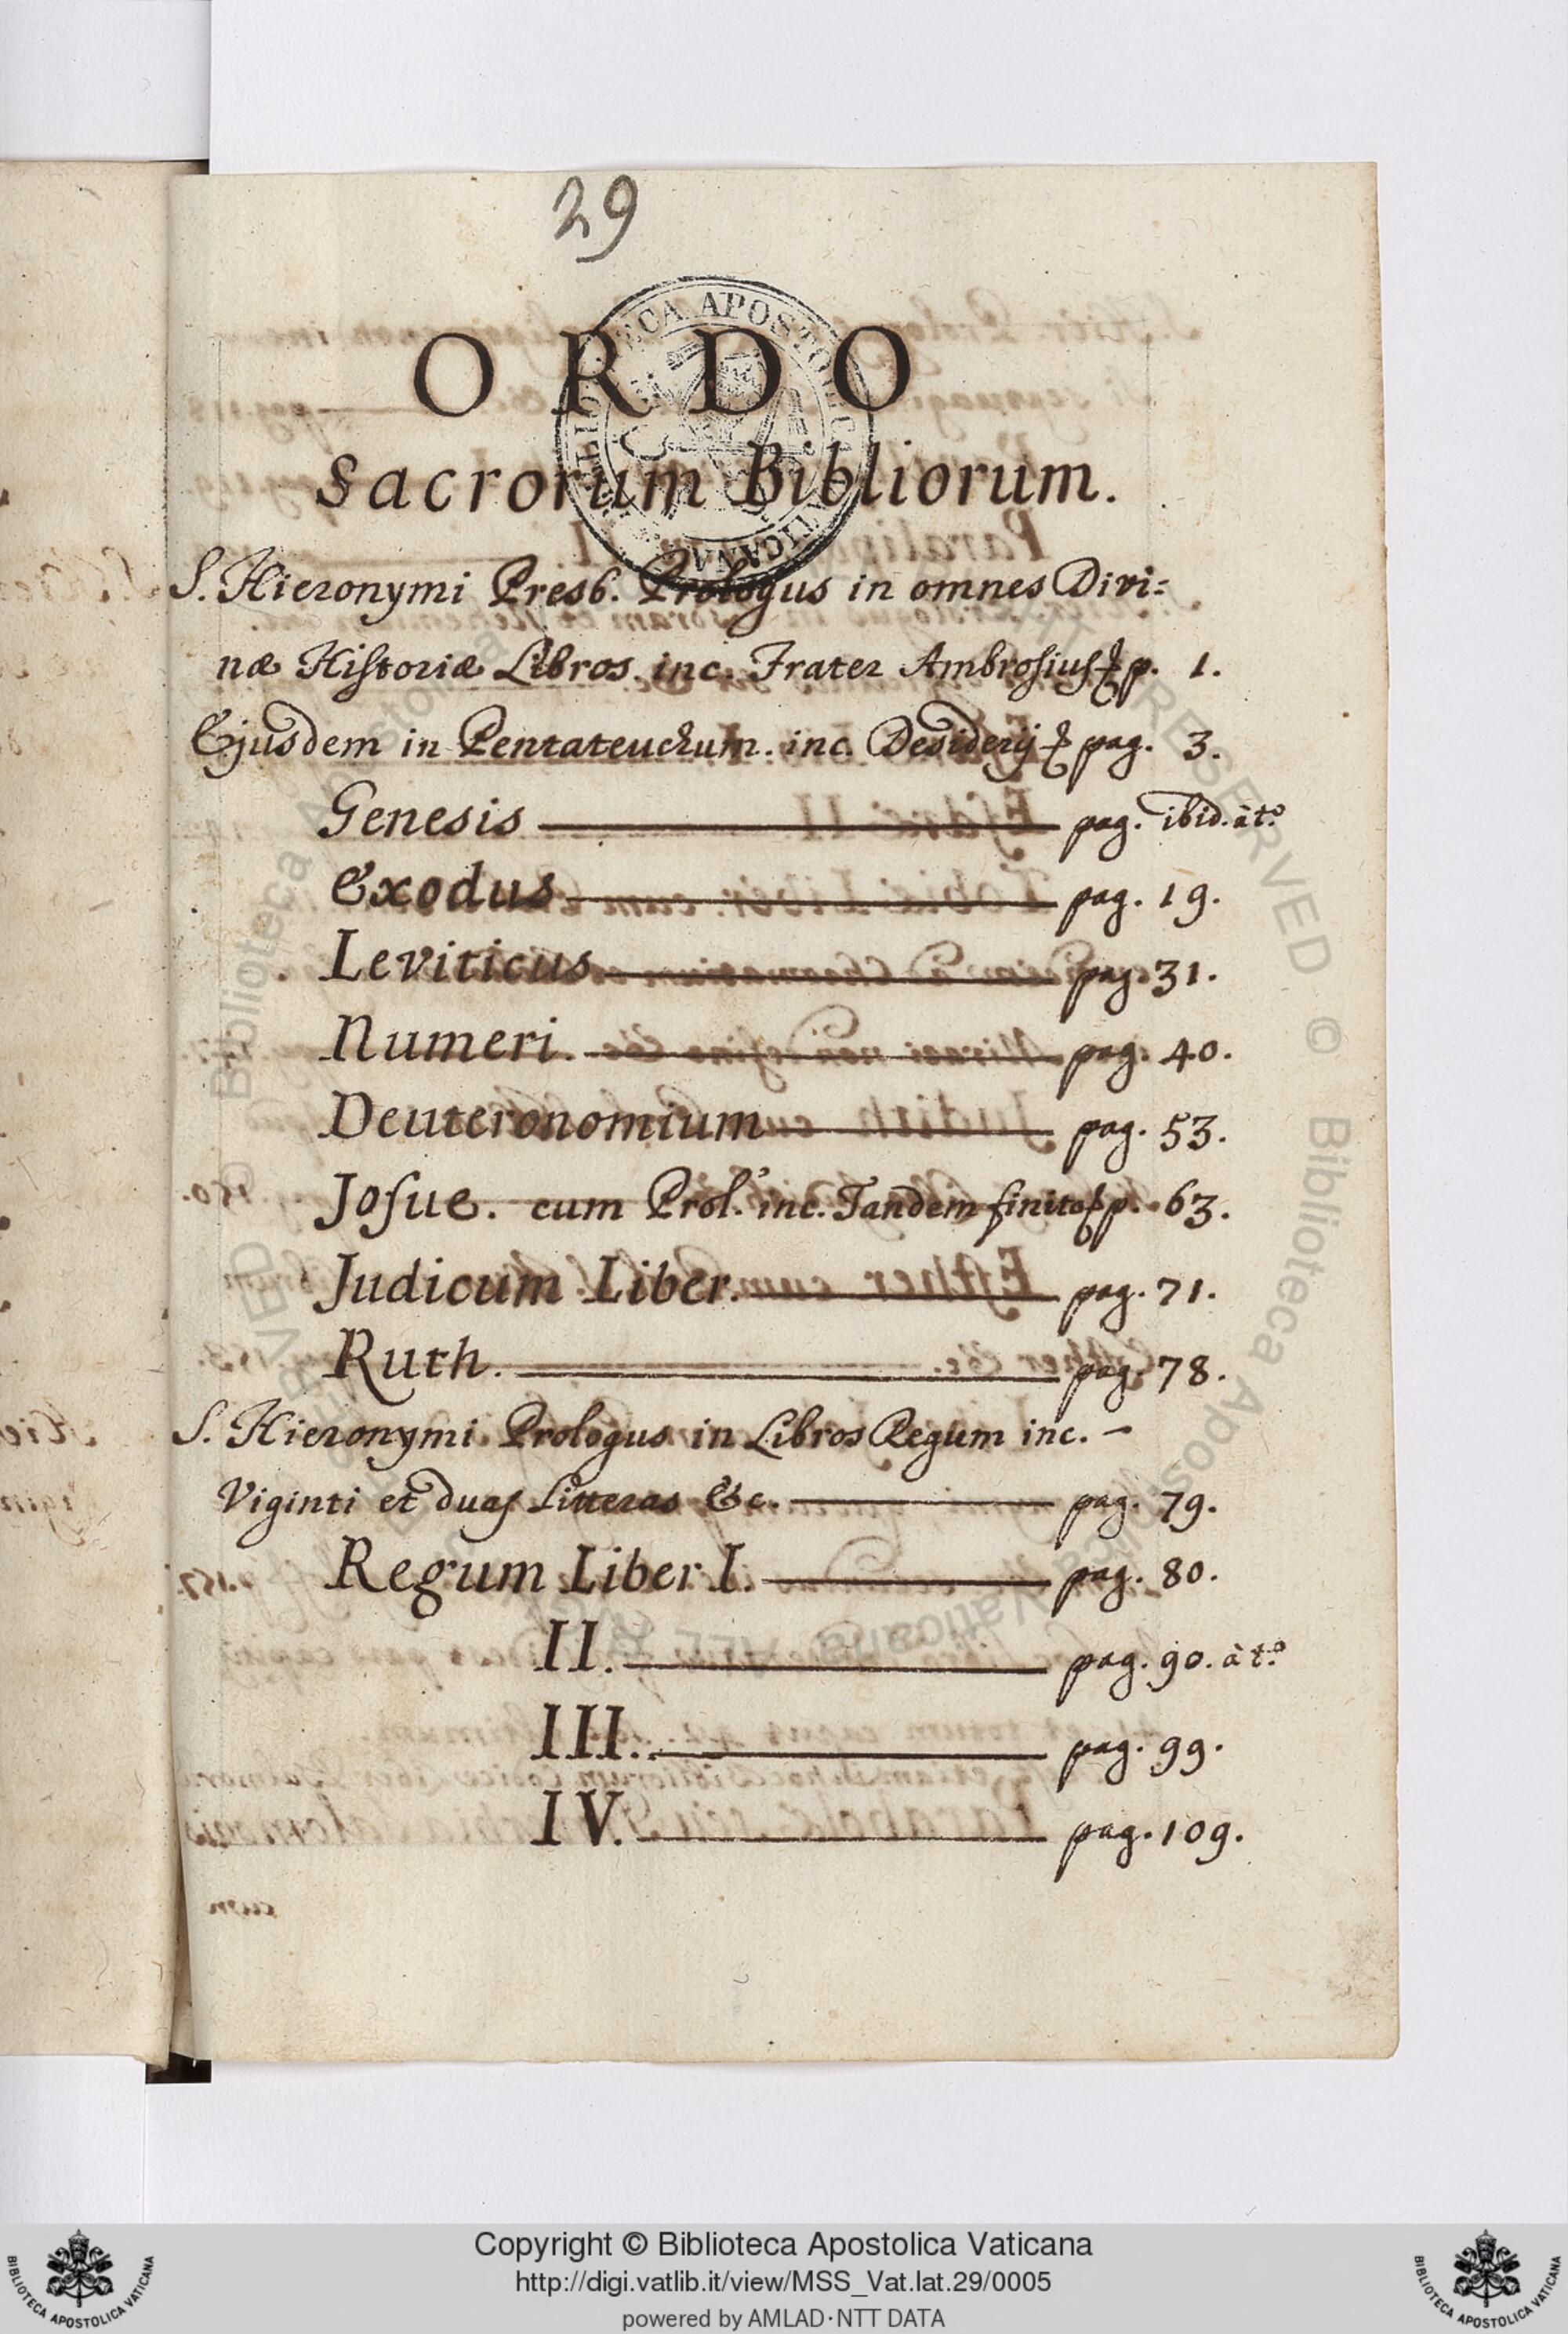 29
ORDO
Sacrorum Bibliorum.
S. Hieronymi Presb. Prologus in omnes Divi=
næ Hiſtoriæ Libros. inc. Frater Ambroſius & p. 1.
Ejusdem in Pentateuchum. inc. Desiderij & pag. 3.
Genesis pag. ibid. à t.º
Exodus pag. 19.
Leviticus pag. 31.
Numeri. pag. 40.
Deuteronomium pag. 53.
Joſue. cum Prol.' inc. Tandem finito & p. 63.
Judicum Liber. pag. 71.
Ruth. pag. 78.
S. Hieronymi Prologus in Libros Regum inc. –
Viginti et duaſ Litteras &c. pag. 79.
Regum Liber I. pag. 80.
II. pag. 90. à t.º
III. pag. 99.
IV. pag. 109.
Copyright © Biblioteca Apostolica Vaticana
http://digi.vatlib.it/view/MSS_Vat.lat.29/0005
powered by AMLAD·NTT DATA
BIBLIOTECA APOSTOLICA VATICANA
BIBLIOTECA APOSTOLICA VATICANA